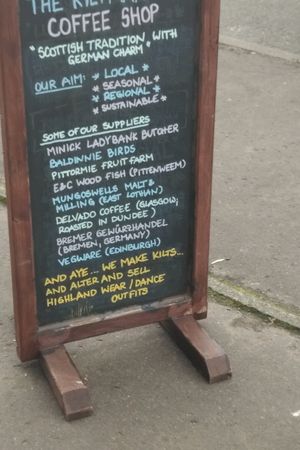 THE
COFFEE SHOP
"SCOTTISH TRADITION WITH
GERMAN CHARM"
OUR AIM: * LOCAL *
* SEASONAL *
* REGIONAL *
* SUSTAINABLE *
SOME OF OUR SUPPLIERS
MINICK LADYBANK BUTCHER
BALDINNIE BIRDS
PITTORMIE FRUIT FARM
E&C WOOD FISH (PITTENWEEM)
MUNGOSWELLS MALT &
MILLING (EAST LOTHIAN)
DELVADO COFFEE (GLASGOW;
ROASTED IN DUNDEE)
BREMER GEWÜRZHANDEL
(BREMEN, GERMANY)
VEGWARE (EDINBURGH)
AND AYE... WE MAKE KILTS...
AND ALTER AND SELL
HIGHLAND WEAR / DANCE
OUTFITS